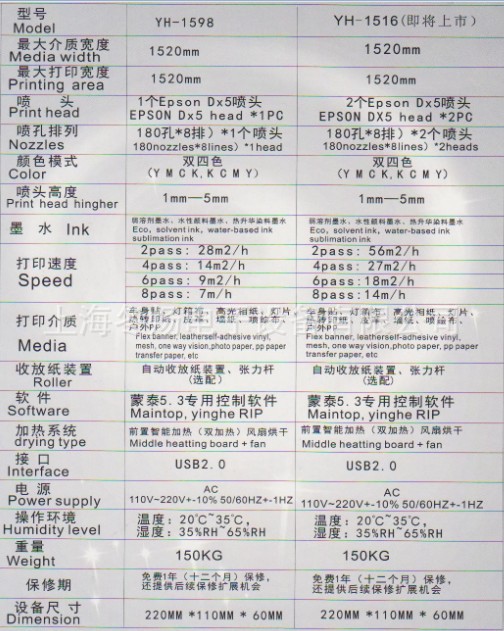 型号 YH-1598 YH-1516(即将上市)
Model
最大介质宽度 1520mm 1520mm
Media width
最大打印宽度 1520mm 1520mm
Printing area
喷 头 1个Epson Dx5喷头 2个Epson Dx5喷头
Print head EPSON Dx5 head *1PC EPSON DX5 head *2PC
喷孔排列 180孔*8排）*1个喷头 180孔*8排）*2个喷头
Nozzles 180nozzles*8lines）*1head 180nozzles*8lines）*2heads
颜色模式 双四色 双四色
Color (Y M C K,K C M Y) (Y M C K,K C M Y)
喷头高度 1mm—5mm 1mm—5mm
Print head hingher
墨 水 Ink 弱溶剂墨水、水性颜料墨水、热升华染料墨水 弱溶剂墨水、水性颜料墨水、热升华染料墨水
Eco, solvent ink, water-based ink Eco, solvent ink, water-based ink
sublimation ink sublimation ink
打印速度 2pass: 28m2/h 2pass: 56m2/h
Speed 4pass: 14m2/h 4pass: 27m2/h
6pass: 9m2/h 6pass:18m2/h
8pass: 7m/h 8pass:14m/h
打印介质 车身贴、灯箱布、高光相纸、灯片、 车身贴、灯箱布、高光相纸、灯片、
户外PP 户外PP
Media Flex banner, leatherself-adhesive vinyl, Flex banner, leatherself-adhesive vinyl,
mesh, one way vision,photo paper, pp paper mesh, one way vision,photo paper, pp paper
transfer paper, etc transfer paper, etc
收放纸装置 自动收放纸装置、张力杆 自动收放纸装置、张力杆
Roller (选配) (选配)
软 件 蒙泰5.3专用控制软件 蒙泰5.3专用控制软件
Software Maintop, yinghe RIP Maintop, yinghe RIP
加热系统 前置智能加热（双加热）风扇烘干 前置智能加热（双加热）风扇烘干
drying type Middle heatting board + fan Middle heatting board + fan
接 口 USB2.0 USB2.0
Interface
电 源 AC AC
Power supply 110V~220V+-10% 50/60HZ+-1HZ 110V~220V+-10% 50/60HZ+-1HZ
操作环境 温度：20℃~35℃, 温度：20℃~35℃,
Humidity level 湿度：35%RH~65%RH 湿度：35%RH~65%RH
重量 150KG 150KG
Weight
保修期 免费1年（十二个月）保修, 免费1年（十二个月）保修,
还提供后续保修扩展机会 还提供后续保修扩展机会
设备尺寸 220MM *110MM * 60MM 220MM *110MM * 60MM
Dimension